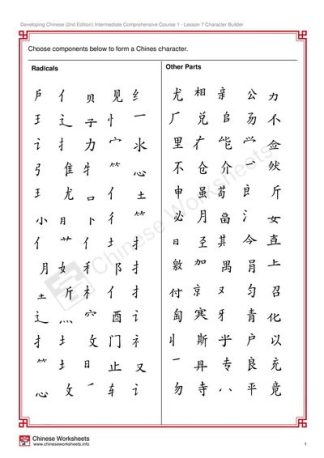 Developing Chinese (2nd Edition) Intermediate Comprehensive Course 1 - Lesson 7 Character Builder
Choose components below to form a Chines character.
Radicals
戶 亻 贝 見 纟
王 辶 子 忄 一
讠 扌 力 宀 水
弓 隹 牜 ⺮ 心
王 尤 口 亻 土
小 日 卜 彳 ⺮
亻 艹 亻 土 扌
月 女 犭 阝 扌
土 斤 木 亻 扌
辶 灬 宀 酉 讠
扌 土 攵 门 礻
⺮ 土 讠 又
心 攵 车 讠
Other Parts
尤 相 亲 公 力
厂 兑 自 不
里 疒 能 佥
不 仓 介 一 然
申 虽 苟 良 斤
必 月 畐 氵 女
日 圣 其 今 直
敫 加 禺 肙 上
付 京 又 匀 召
匋 寒 牙 青 化
丩 斯 乎 户 以
一 具 专 良 充
勿 寺 八 平 竟
Chinese Worksheets
Chinese Worksheets
www.chineseworksheets.info
1